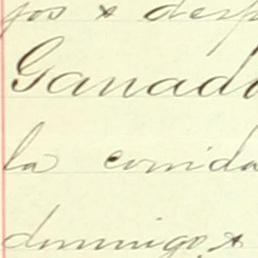 jos x desp
Ganado
la comida
domingo, x